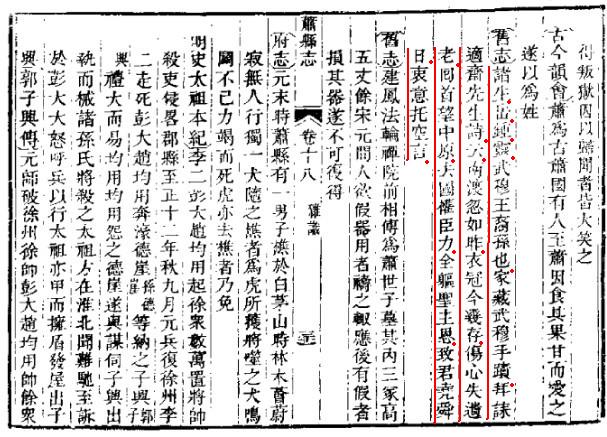 得叛獄因以聞者皆大笑之
古今韻會蕭爲古蕭國有人至蕭因食其果甘而愛之
遂以爲姓
舊志諸生岳鍊武穆王裔孫也家藏武穆手蹟拜誄
適齋先生詩云南渡忽如昨衣冠今幾存傷心失遺
老回首望中原去國惟臣力全軀聖主恩致君堯舜
日衷意托空言
舊志建鳳法輪禪院前相傳爲蕭世子墓其內三冢高
五丈餘宋元間人欲假器用者禱之輒應後有假者
損其器遂不可復得
蕭縣志 卷十八 雜
府志元末時蕭縣有一男子樵於白茅山時林木蓊蔚
寂無人行獨一犬隨之樵者爲虎所攫將噬之犬鳴
鬬不已力竭而死虎亦去樵者乃免
明史太祖本紀李二彭大趙均用起徐衆數萬置將帥
殺吏侵畧郡縣至正十二年秋九月元兵復徐州李
二走死彭大趙均用奔濠德崖孫德崖等納之子興郭子
興禮大而易均用均用怨之德崖遂與謀伺子興出
執而械諸孫氏將殺之太祖方在淮北聞難馳至訴
於彭大大怒呼兵以行太祖亦甲而擁盾發屋出子
興郭子興傳元師破徐州徐帥彭大趙均用帥餘衆